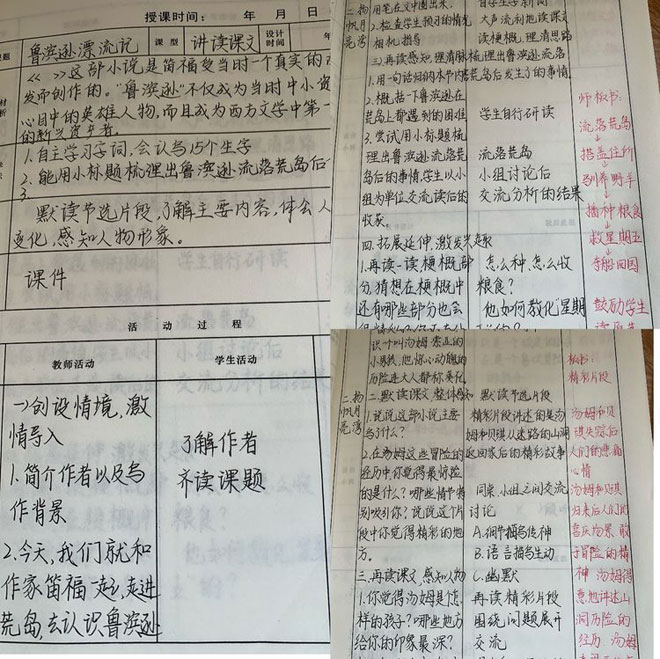 授课时间： 年 月 日
鲁滨逊漂流记 课型 讲读课文 设计时间
《 》这部小说是笛福受当时一个真实的
发而创作的。“鲁滨逊”不仅成为当时中小资
心目中的英雄人物,而且成为西方文学中第一
的新兴资产者。
1.自主学习字词,会认写15个生字
2.能用小标题梳理出鲁滨逊流落荒岛后一
3.
默读节选片段,了解主要内容,体会人
变化,感知人物形象。
课件
活 动 过 程
教师活动 学生活动
一)创设情境,激
情导入
1.简介作者以及写
作背景
2.今天,我们就和
作家笛福一起,走进
荒岛,去认识鲁滨逊
了解作者
齐读课题
二.扬帆月亮湾
用笔在文中圈出来.
2.检查学生预习的情况
相机指导
三.再读感知,理清脉络
1.用一句话归纳本节内容
2.概括一下鲁滨逊在
荒岛上都遇到的困难
3.尝试用小标题梳
理出鲁滨逊流落荒岛
后的事情,学生以小
组为单位交流读后的
收获
四.拓展延伸,激发兴趣
1.再读一读梗概部
分,猜想在梗概中
还有哪些部分也会
自己学生字词
大声流利地读课文
读梗概,理清思路
梳理出鲁滨逊流落
荒岛后发生了的事情
学生自行研读
流落荒岛
小组讨论后
交流分析的结果
怎么种,怎么收
粮食?
他如何教化“星期
师板书:
流落荒岛
搭盖住所
驯养野羊
播种粮食
救星期五
夺船回国
鼓励学生
识一叫汤姆·索亚的
小男孩,他惊心动魄的
历险连大人都称赞佩
二扬帆月亮湾
二.默读课文,整体感知
1.说说这部小说主要
写了什么?
2.在汤姆这些冒险的
经历中,你觉得最惊险
的是什么?哪些情节特
别吸引你?说说这个片
段中你觉得精彩的地
方。
三.再读课文,感知人物
1.你觉得汤姆是怎
样的孩子?哪些地方
给你的印象最深?
默读节选片段
精彩片段讲述的是汤
姆和贝琪从迷路的山洞
返回家后的精彩故事
同桌、小组之间交流
讨论
A.细节描写传神
B.语言描写生动
C.幽默
再读精彩片段
围绕问题展开
交流
板书:
精彩片段
汤姆和贝
琪失踪后
人们的悲痛
心情
汤姆和贝琪
归来后人们的
喜庆场景 敢
于冒险的精
神 汤姆得
意地讲述山
洞历险的
经历 汤姆